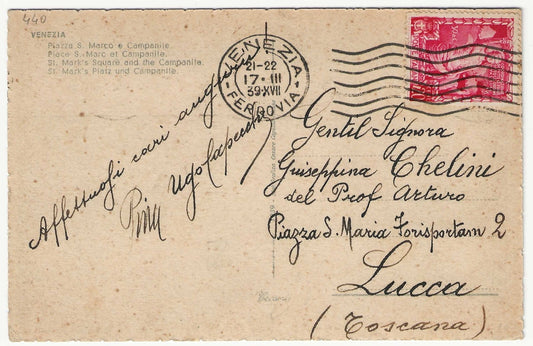 440
VENEZIA
Piazza S. Marco e Campanile.
Place S. Marc et Campanile.
St. Mark's Square and the Campanile.
St. Mark's Platz und Campanile.
VENEZIA
21-22
17·III
39·XVII
FERROVIA
Affettuosi cari auguri
Pina Ugo Capecchi
Gentil Signora
Guiseppina Chelini
del Prof Arturo
Piazza S. Maria Forisportam 2
Lucca
(Toscana)